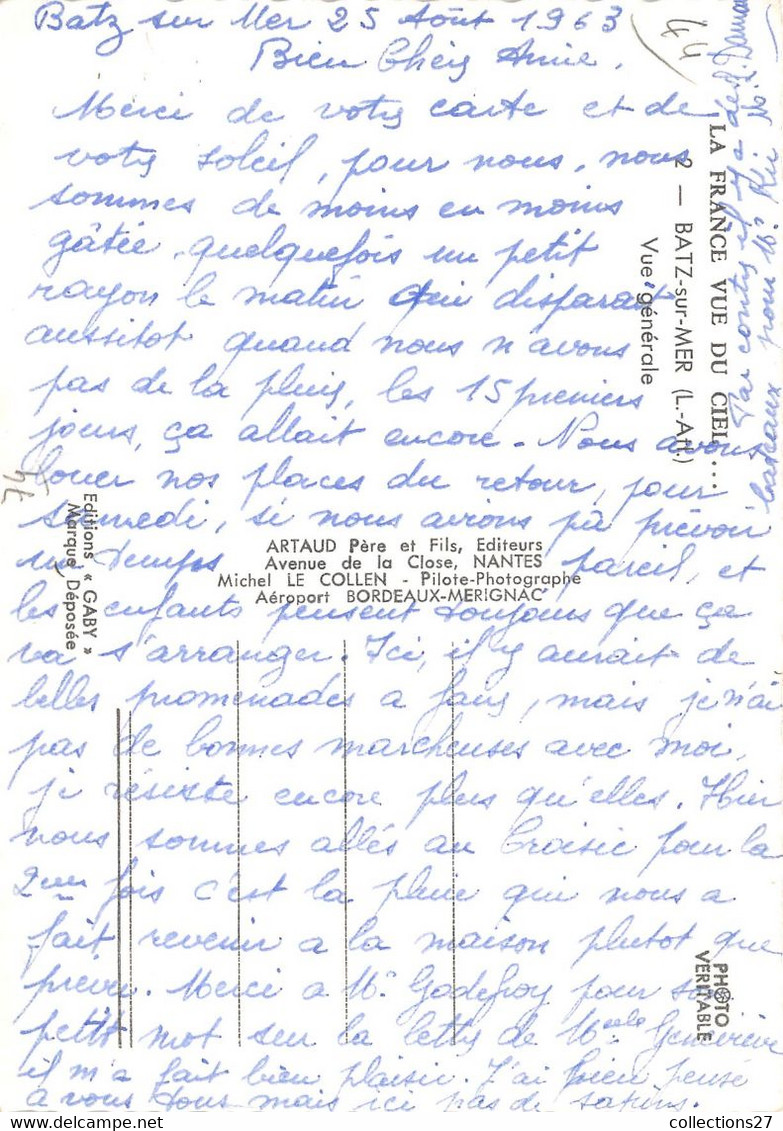 Batz sur Mer 25 Août 1963
Bien Chère Amie,
Merci de votre carte et de
votre soleil, pour nous, nous
sommes de moins en moins
gâtée, quelquefois un petit
rayon le matin qui disparait
aussitot quand nous n'avons
pas de la pluie, les 15 premiers
jours, ça allait encore. Nous avons
louer nos places du retour, pour
samedi, si nous avions pû prévoir
un temps pareil, et
les enfants pensent toujours que ça
va s'arranger. Ici, il y aurait de
belles promenades a faire, mais je n'ai
pas de bonnes marcheuses avec moi,
je résiste encore plus qu'elles. Hier
nous sommes allés au Croisic pour la
2eme fois c'est la pluie qui nous a
fait revenir a la maison plutot que
prevu. Merci a Mr Godefroy pour son
petit mot sur la lettre de Melle Geneviève
il m'a fait bien plaisir. J'ai bien pensé
a vous tous mais ici pas de
44
LA FRANCE VUE DU CIEL...
2 — BATZ-sur-MER (L.-Atl.)
Vue générale
Editions « GABY »
Marque Déposée
ARTAUD Père et Fils, Editeurs
Avenue de la Close, NANTES
Michel LE COLLEN - Pilote-Photographe
Aéroport BORDEAUX-MERIGNAC
PHOTO
VÉRITABLE
collections27